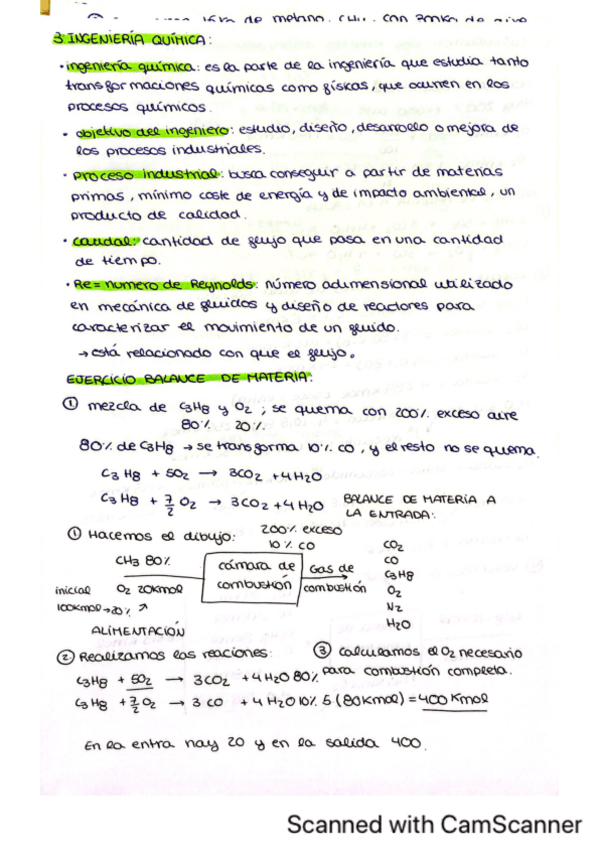 de metano. con
3 INGENIERÍA QUÍMICA:
· ingeniería química: es la parte de la ingeniería que estudia tanto
transformaciones químicas como físicas, que ocurren en los
procesos químicos.
· objetivo del ingeniero: estudio, diseño, desarrollo o mejora de
los procesos industriales.
· proceso industrial: busca conseguir a partir de materias
primas, mínimo coste de energía y de impacto ambiental, un
producto de calidad.
· caudal: cantidad de flujo que pasa en una cantidad
de tiempo.
· Re = numero de Reynolds: número adimensional utilizado
en mecánica de fluidos y diseño de reactores para
caracterizar el movimiento de un fluido.
→ está relacionado con que el flujo.
EJERCICIO BALANCE DE MATERIA:
① mezcla de C3H8 y O2; se quema con 200% exceso aire
80% 20%
80% de C3H8 → se transforma 10% CO, y el resto no se quema.
C3H8 + 5O2 → 3CO2 + 4H2O
C3H8 + 7/2 O2 → 3CO2 + 4H2O
BALANCE DE MATERIA A
LA ENTRADA:
① Hacemos el dibujo:
200% exceso
10% CO
CH3 80%
inicial O2 20Kmol
100Kmol → 20% ↗
ALIMENTACIÓN
cámara de
combustión
Gas de
combustión
CO2
CO
C3H8
O2
N2
H2O
② Realizamos las reaciones:
C3H8 + 5O2 → 3CO2 + 4H2O 80%
C3H8 + 7/2 O2 → 3CO + 4H2O 10%
③ Calculamos el O2 necesario
para combustión completa.
5(80Kmol) = 400 Kmol
En la entra hay 20 y en la salida 400.
Scanned with CamScanner